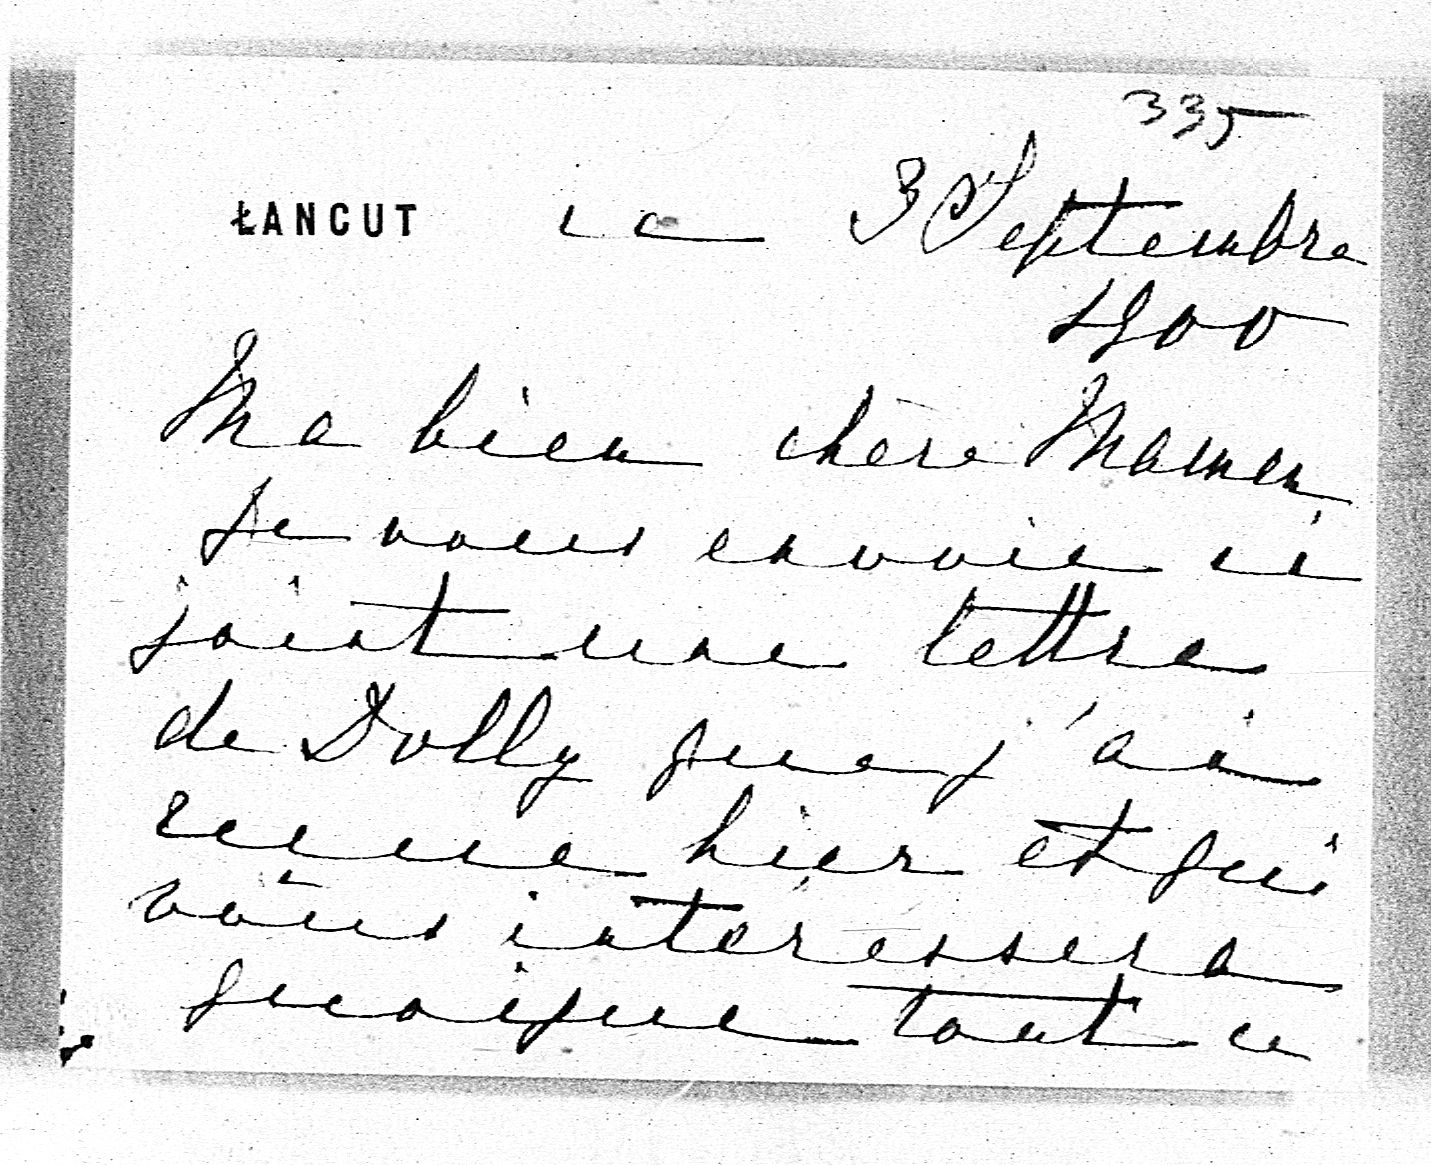 335
ŁANCUT ce 3 Septembre
1900
Ma bien chère Maman
Je vous envoie ci
joint une lettre
de Dolly que j'ai
reçue hier et qui
vous intéressera
quoique tout ce